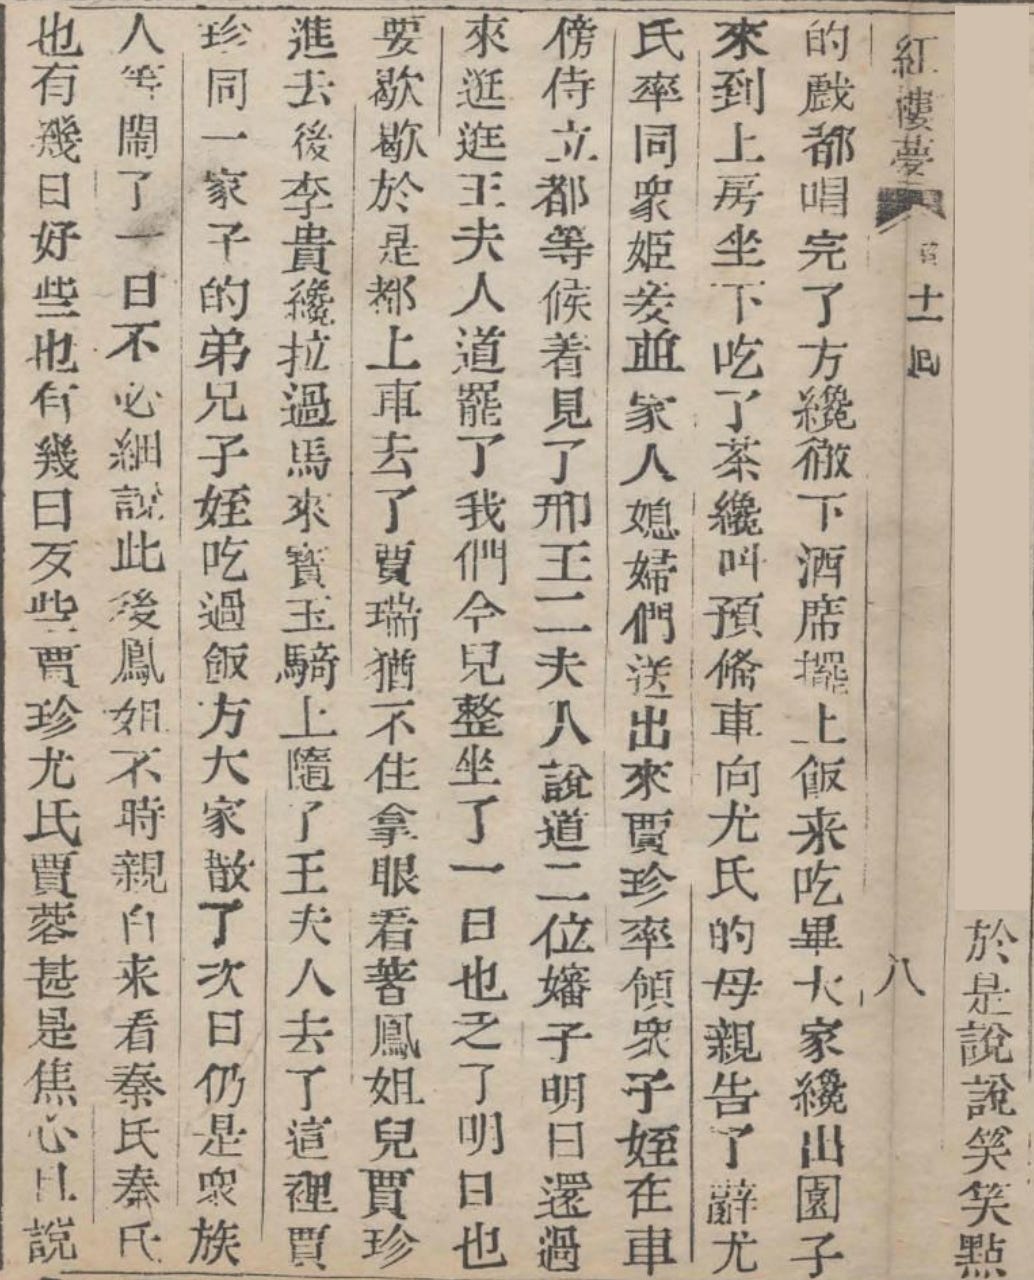 於是說說笑笑點
紅樓夢 第十一回 八
的戲都唱完了方纔徹下酒席擺上飯来吃畢大家纔出園子
來到上房坐下吃了茶纔叫預俻車向尤氏的母親告了辭尤
氏率同衆姬妾並家人媳婦們送出來賈珍率領衆子姪在車
傍侍立都等候着見了邢王二夫人說道二位嬸子明日還過
來逛逛王夫人道罷了我們今兒整坐了一日也乏了明日也
要歇歇於是都上車去了賈瑞猶不住拿眼看着鳳姐兒賈珍
進去後李貴纔拉過馬來寳玉騎上隨了王夫人去了這裡賈
珍同一家子的弟兄子姪吃過飯方大家散了次日仍是衆族
人等閙了一日不必細說此後鳳姐不時親自来看秦氏秦氏
也有幾日好些也有幾日歹些賈珍尤氏賈蓉甚是焦心且說